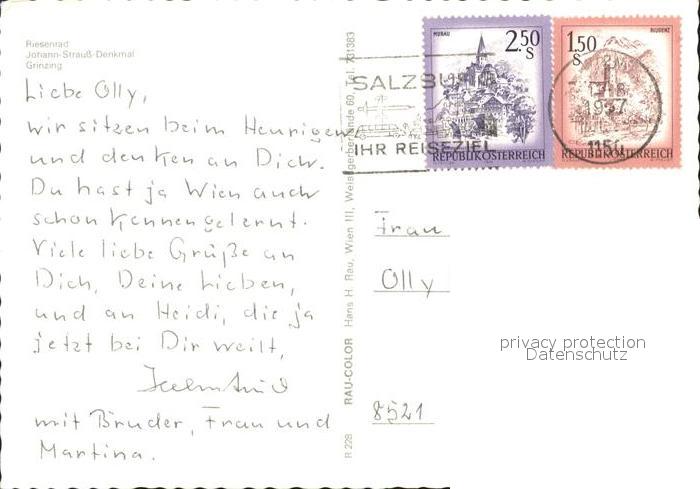 Riesenrad
Johann-Strauß-Denkmal
Grinzing
Liebe Olly,
wir sitzen beim Heurigen
und denken an Dich.
Du hast ja Wien auch
schon kennengelernt.
Viele liebe Grüße an
Dich, Deine Lieben,
und an Heidi, die ja
jetzt bei Dir weilt,
mit Bruder, Frau und
Martina.
R 228 RAU-COLOR Hans H. Rau, Wien III, Weissgerberlände 60, Tel. 731383
SALZBURG
IHR REISEZIEL
MURAU
2.50
S
REPUBLIK ÖSTERREICH
BLUDENZ
1.50
S
REPUBLIK ÖSTERREICH
1150
Frau
Olly
8521
privacy protection
Datenschutz